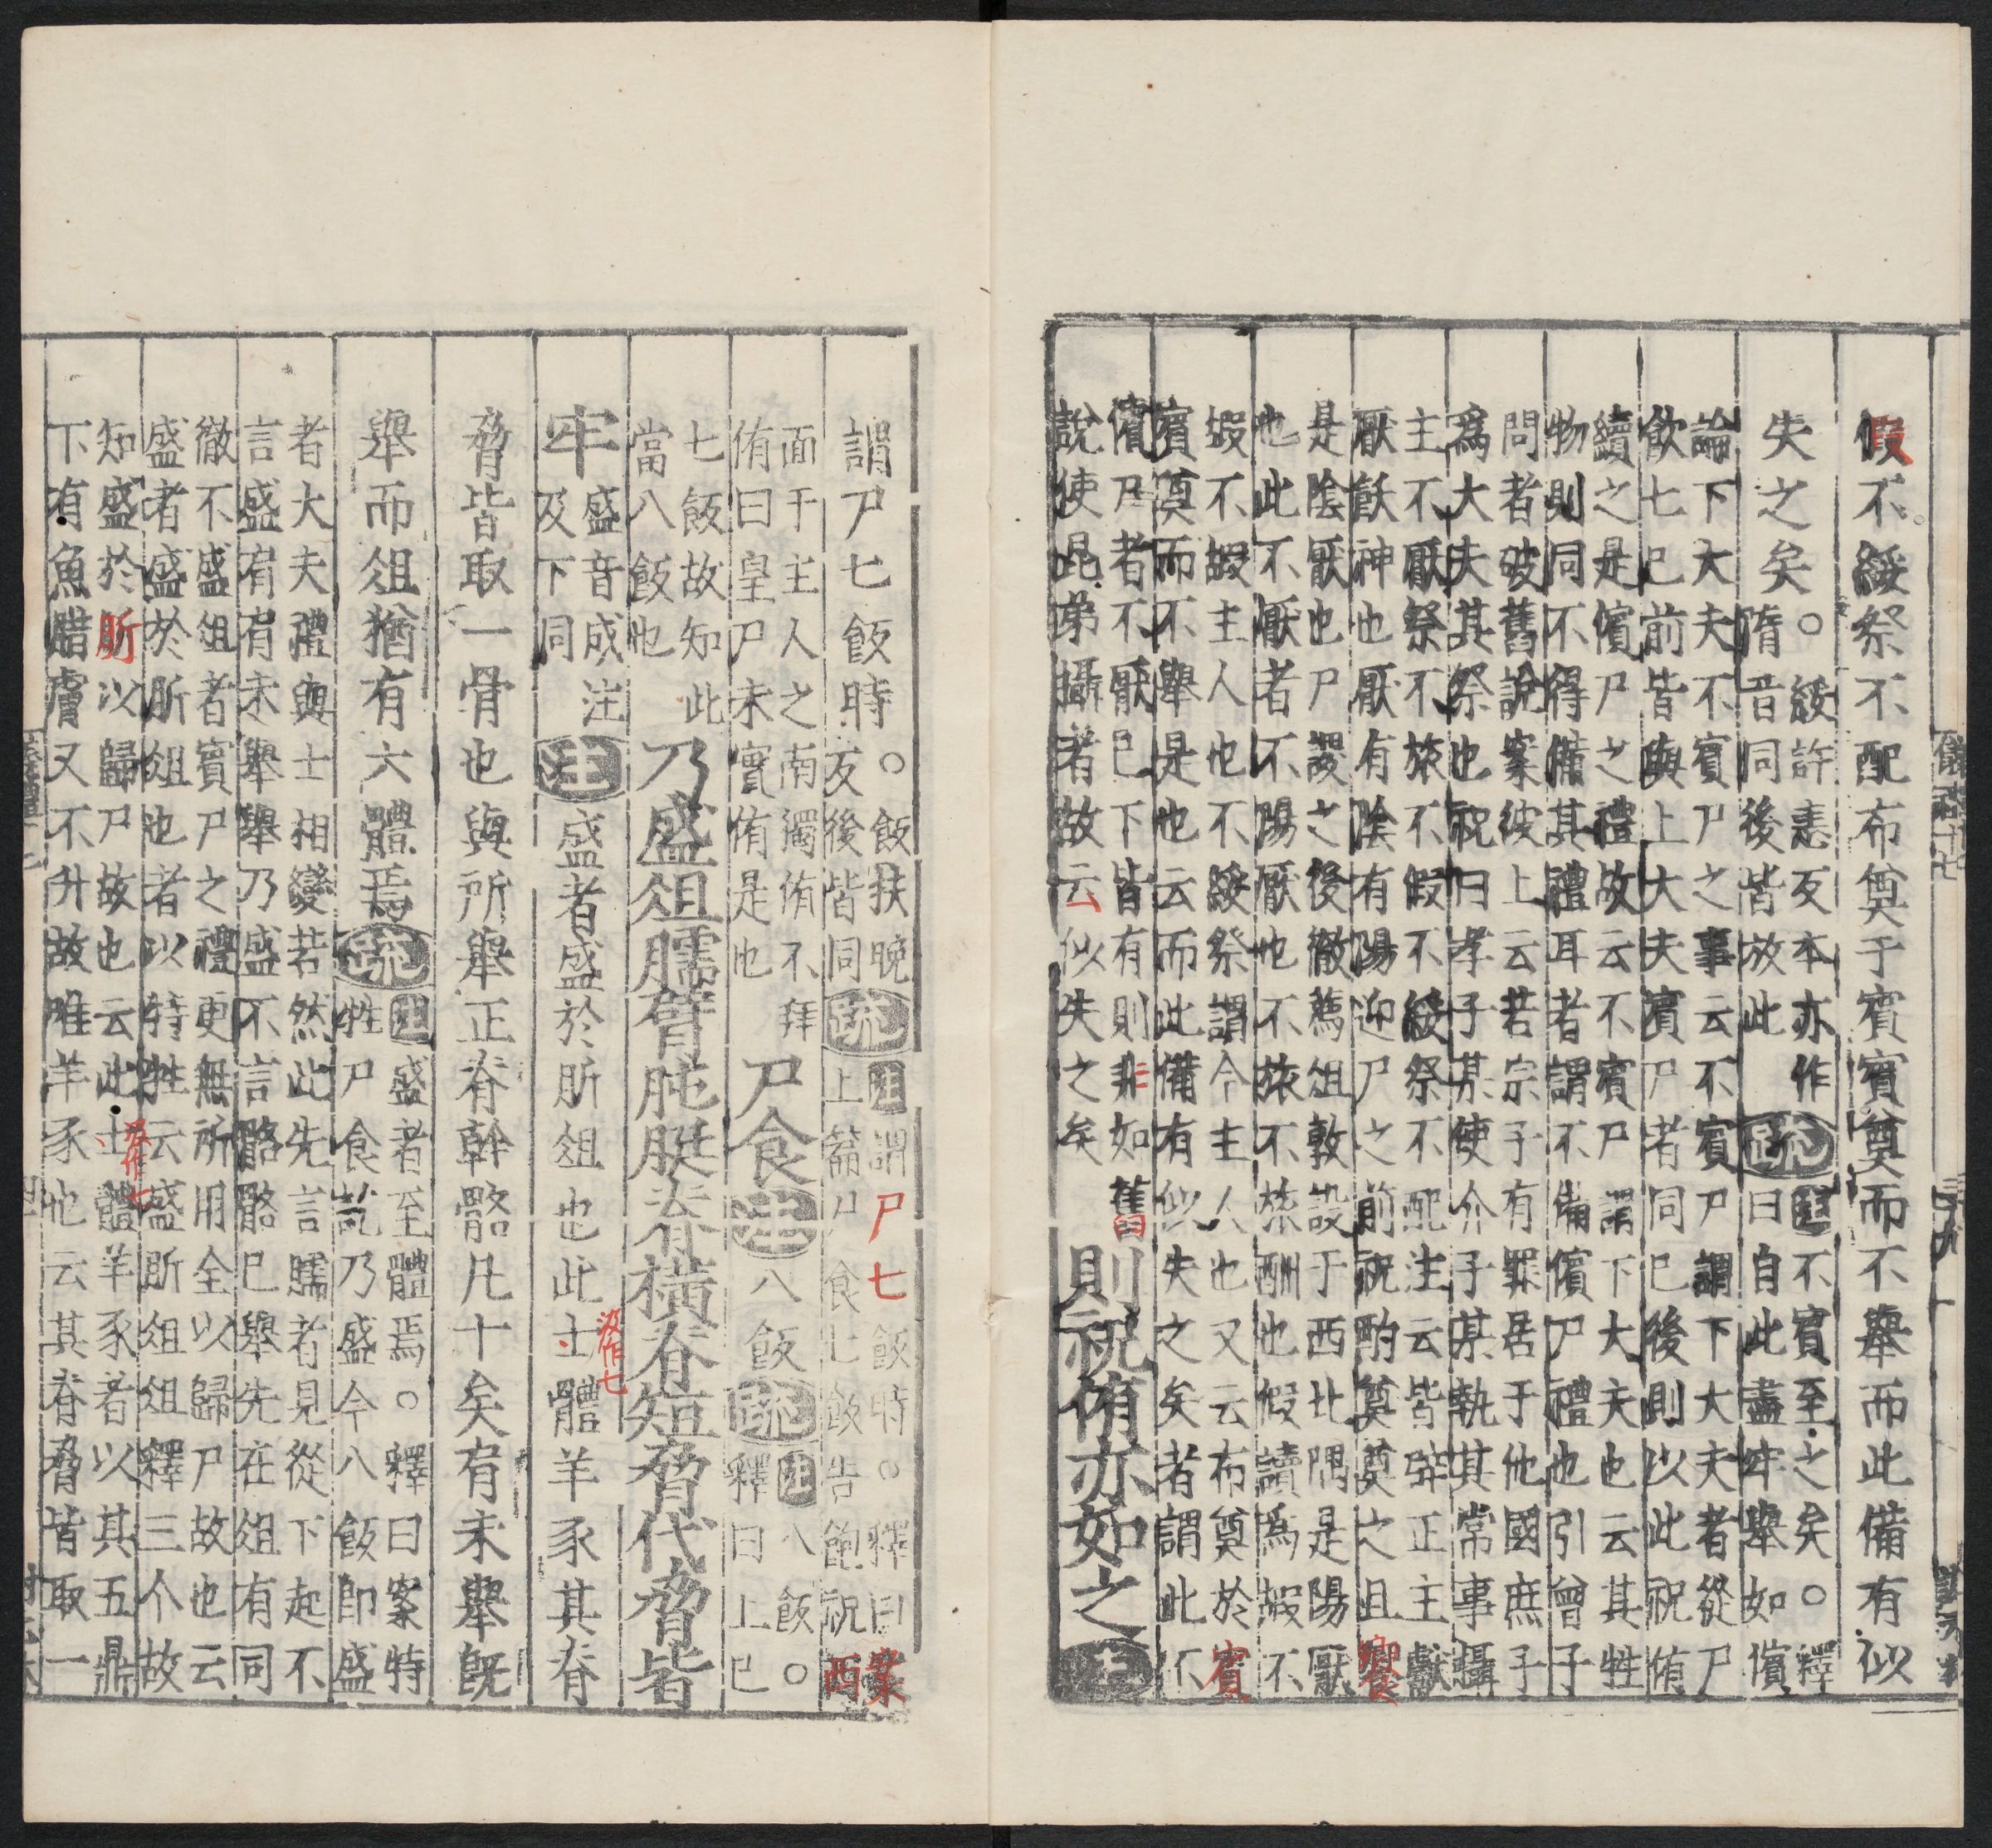 假不綏祭不配布奠于賓賓奠而不舉而此備有似
失之矣○綏許恚反本亦作
隋音同後皆放此
疏
注不賓至之矣○釋
曰自此盡牢舉如儐
論下大夫不賓尸之事云不賓尸謂下大夫者從尸
飲七已前皆與上大夫賓尸者同已後則以此祝侑
續之是儐尸之禮故云不賓尸謂下大夫也云其牲
物則同不得備其禮耳者謂不備儐尸禮也引曾子
問者破舊說案彼上云若宗子有罪居于他國庶子
爲大夫其祭也祝曰孝子某使介子某執其常事攝
主不厭祭不旅不假不綏祭不配注云皆辟正主獻
厭飫神也厭有陰有陽迎尸之前祝酌奠奠之且饗
是陰厭也尸謖之後徹薦俎敦設于西北隅是陽厭
也此不厭者不陽厭也不旅不旅酬也假讀爲嘏不
嘏不嘏主人也不綏祭謂今主人也又云布奠於賓
賓奠而不舉是也云而此備有似失之矣者謂此不
儐乃者不厭已下皆有則非如舊
說使昆弟攝者故云似失之矣
則祝侑亦如之
注
儀禮十七
謂尸七飯時○飯扶晚
反後皆同
疏
注謂尸七飯時○釋曰案
上篇尸食七飯告飽祝西
面于主人之南獨侑不拜
侑曰皇尸未實侑是也
尸食
注
八飯
疏
注八飯○
釋曰上已
七飯故知此
當八飯也
乃盛俎臑臂肫脡脊橫脊短脅代脅皆
牢
盛音成注
及下同
注
盛者盛於肵俎也此士體羊豕其脊
汲作七
脅皆取一骨也與所舉正脊幹骼凡十矣肩未舉既
舉而俎猶有六體焉
疏
注盛者至體焉○釋曰案特
牲尸食訖乃盛今八飯即盛
者大夫禮與士相變若然此先言臑者見從下起不
言盛肩肩未舉舉乃盛不言骼骼已舉先在俎有同
徹不盛俎者賓尸之禮更無所用全以歸尸故也云
盛者盛於肵俎也者以特牲云盛肵俎俎釋三个故
知盛於肵以歸尸故也云此士體羊豕者以其五鼎
汲作七
下有魚腊膚又不升故唯羊豕也云其脊脅皆取一